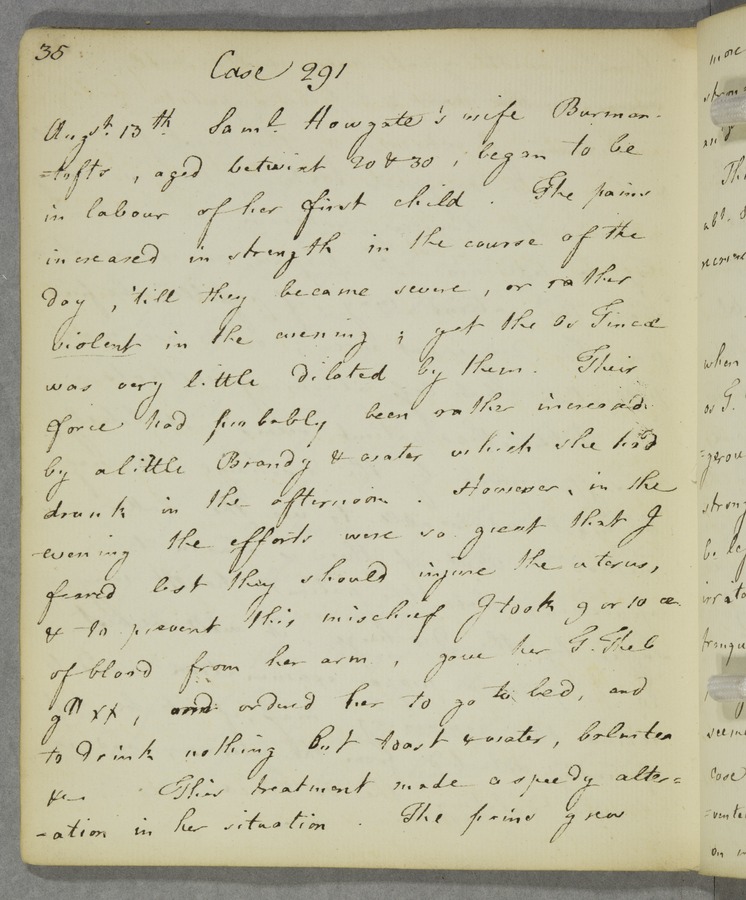 35
Case 291
Augst. 13th. Saml. Howgate's wife Burman-
-tofts, aged betwixt 20 & 30, began to be
in labour of her first child. The pains
increased in strength in the course of the
day, 'till they became severe, or rather
violent in the evening; yet the Os Tincæ
was very little dilated by them. Their
force had probably been rather increased
by a little Brandy & water which she had
drank in the afternoon. However, in the
evening the efforts were so great that I
feared lest they should injure the uterus,
& to prevent this mischief I took 9 or 10 oz.
of blood from her arm, gave her T. Theb
gtt xx, and ordered her to go to bed, and
to drink nothing but toast & water, balmtea
&c. This treatment made a speedy alter=
-ation in her situation. The pains grew
more
strong
Th
when
os T.
=gerou
strong
be le
irrita
tranqu
seeme
case
on